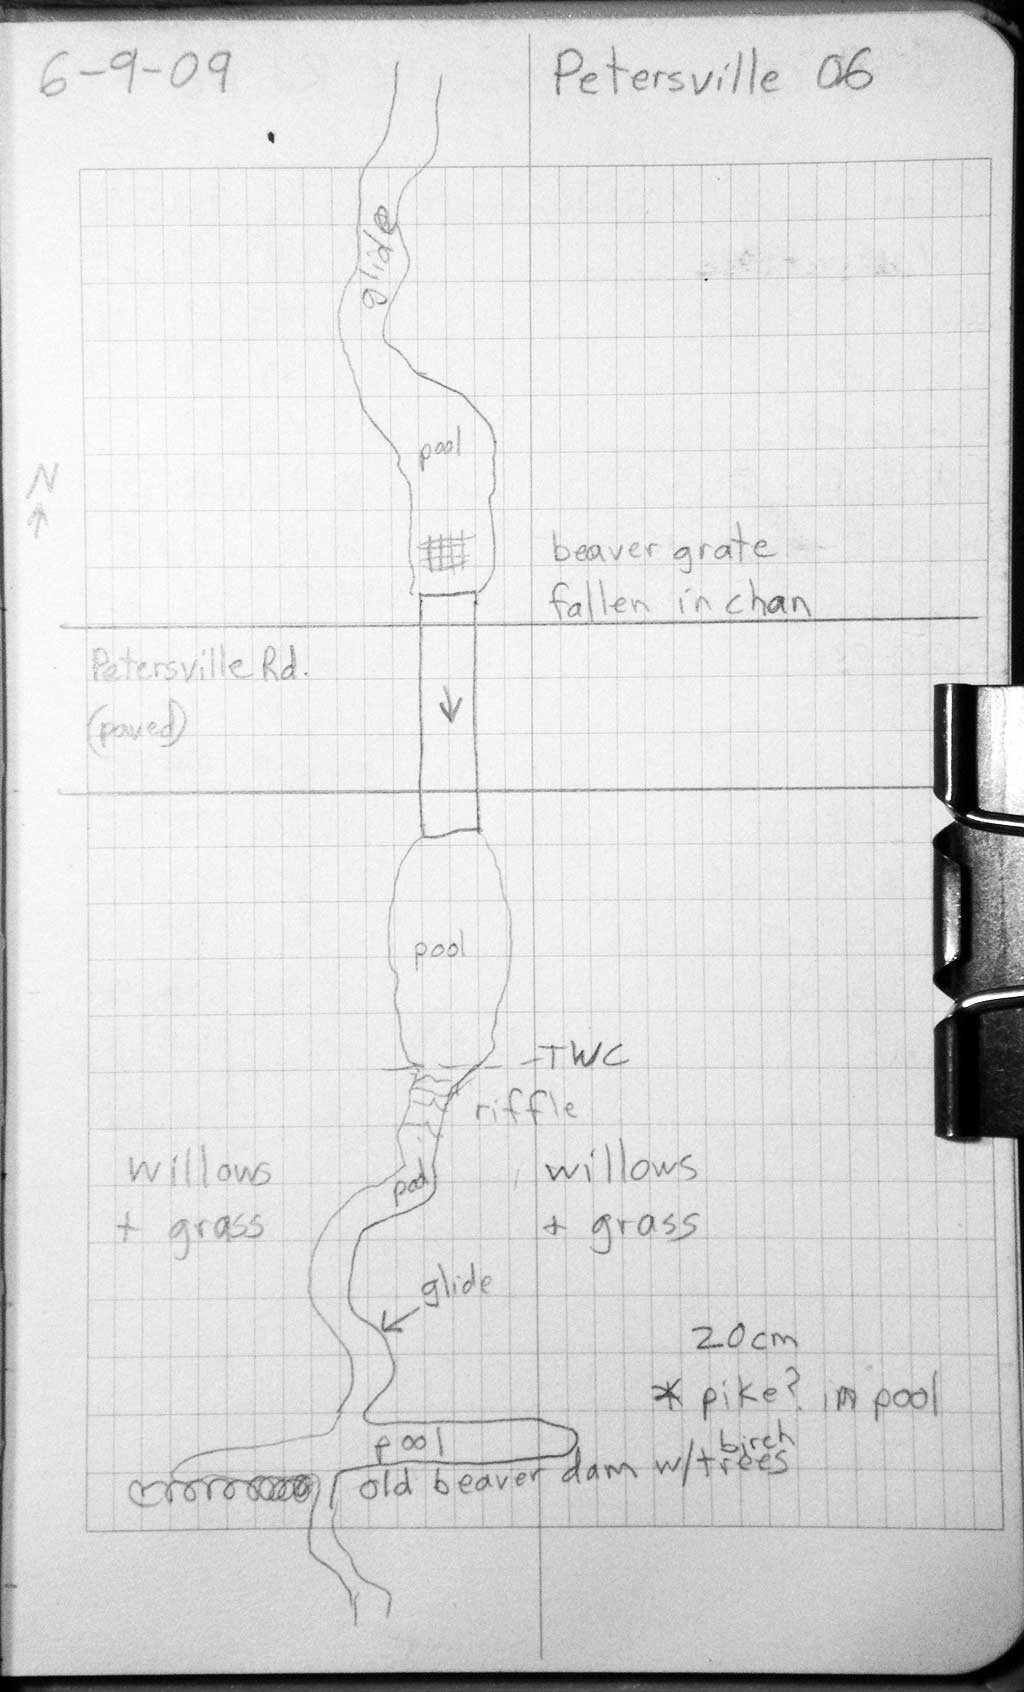 6-9-09
Petersville 06
glide
pool
N
beaver grate
fallen in chan
Petersville Rd.
(paved)
pool
TWC
riffle
willows
+ grass
pool
willows
+ grass
glide
20cm
* pike? in pool
pool
birch
old beaver dam w/trees